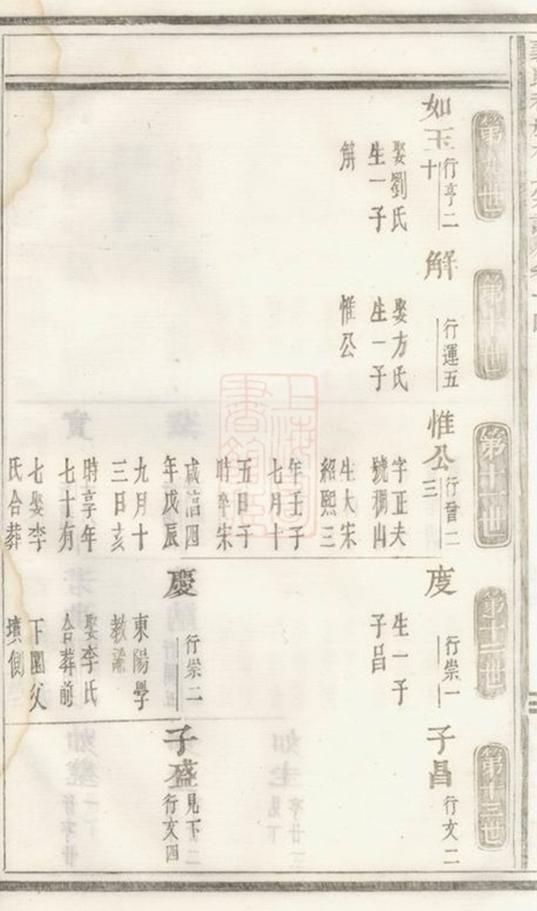 第九世
如玉
行亨二
十
娶劉氏
生一子
解
第十世
解
行運五
娶方氏
生一子
惟公
第十一世
惟公
行晉二
三
字正夫
號稠山
生大宋
紹熙三
年壬子
七月十
五日子
時卒宋
咸淳四
年戊辰
九月十
三日亥
時享年
七十有
七娶李
氏合葬
第十二世
度
行崇一
生一子
子昌
慶
行崇二
東陽學
教諭
娶李氏
合葬前
下園父
墳側
第十三世
子昌
行文二
子盛
見下
行文四
上海圖書館藏